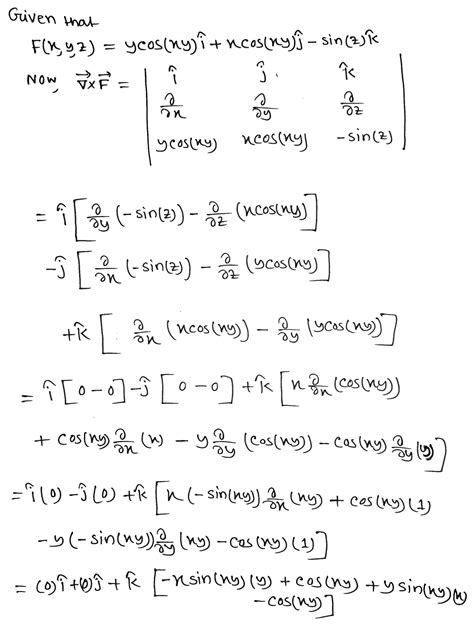 Given that
F(x,y,z) = ycos(xy)î + xcos(xy)ĵ - sin(z)k̂
Now, ∇⃗×F⃗ = | î ĵ k̂
∂/∂x ∂/∂y ∂/∂z
ycos(xy) xcos(xy) -sin(z) |
= î [∂/∂y (-sin(z)) - ∂/∂z (xcos(xy)]
-ĵ [∂/∂x (-sin(z)) - ∂/∂z (ycos(xy)]
+k̂ [ ∂/∂x (xcos(xy)) - ∂/∂y (ycos(xy))]
= î [0-0] -ĵ [0-0] + k̂ [x ∂/∂x (cos(xy))
+ cos(xy) ∂/∂x (x) - y ∂/∂y (cos(xy)) - cos(xy) ∂/∂y (y)]
= î(0) -ĵ(0) + k̂ [x (-sin(xy)) ∂/∂x (xy) + cos(xy) (1)
-y (-sin(xy)) ∂/∂y (xy) - cos(xy) (1)]
= (0)î + (0)ĵ + k̂ [-xsin(xy) (y) + cos(xy) + y sin(xy)(x)
- cos(xy)]